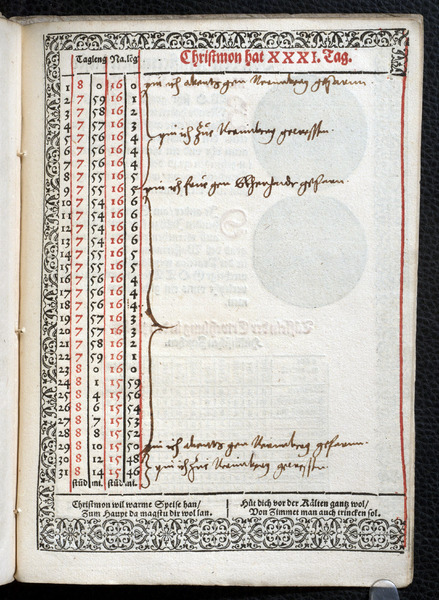 Tagleng Na.leg Christmon hat XXXI. Tag.
1 8 0 16 0 pin ich abentz gen gefarnn.
2 7 59 16 1
3 7 58 16 2
4 7 57 16 3 pin ich zur
5 7 56 16 4
6 7 56 16 4
7 7 56 16 4
8 7 55 16 5
9 7 55 16 5 pin ich gen gefarn.
10 7 54 16 6
11 7 54 16 6
12 7 54 16 6
13 7 54 16 6
14 7 55 16 5
15 7 55 16 5
16 7 56 16 4
17 7 56 16 4
18 7 56 16 4
19 7 57 16 3
20 7 57 16 3
21 7 58 16 2
22 7 59 16 1
23 8 0 16 0
24 8 1 15 59
25 8 4 15 56
26 8 6 15 54
27 8 7 15 53
28 8 8 15 52
29 8 10 15 50 pin ich abentz gen gefarnn.
30 8 12 15 48 pin ich zur
31 8 14 15 46
stūd mi. stūd mi.
Christmon wil warme Speise han/
Zum Haupt da magstu dir wol lan.
Hüt dich vor der Kälten gantz wol/
Von Zimmet man auch trincken sol.